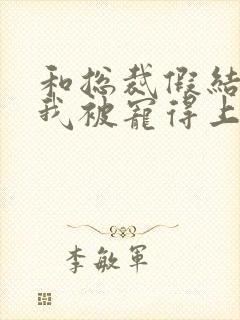 和总裁假结
我被宠得上
李敏军